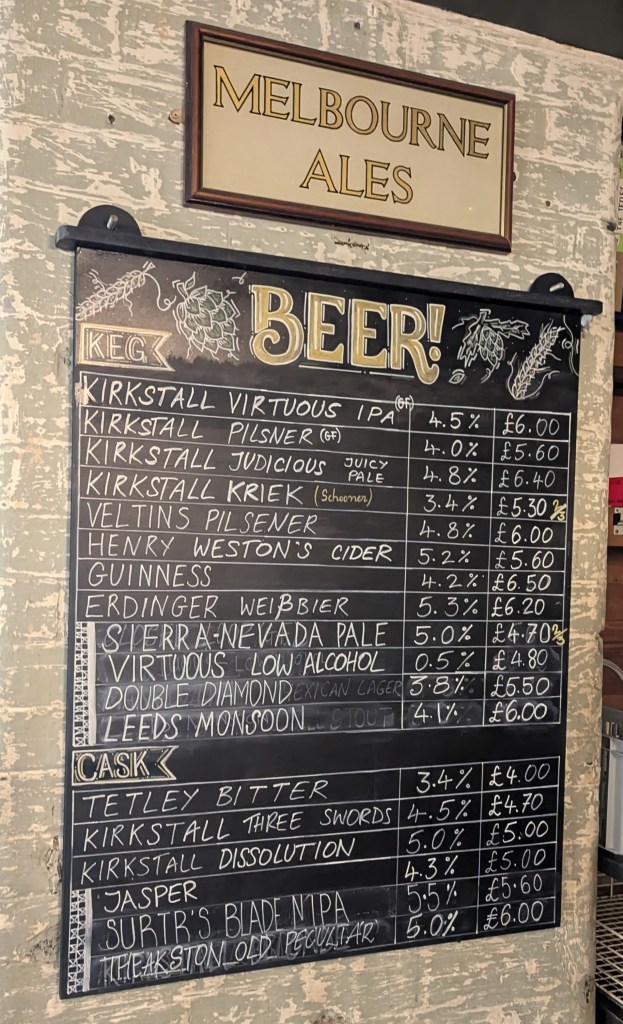 MELBOURNE
ALES
BEER!
KEG
KIRKSTALL VIRTUOUS IPA (GF) 4.5% £6.00
KIRKSTALL PILSNER (GF) 4.0% £5.60
KIRKSTALL JUDICIOUS JUICY PALE 4.8% £6.40
KIRKSTALL KRIEK (Schooner) 3.4% £5.30 2/3
VELTINS PILSENER 4.8% £6.00
HENRY WESTON'S CIDER 5.2% £5.60
GUINNESS 4.2% £6.50
ERDINGER WEIßBIER 5.3% £6.20
SIERRA-NEVADA PALE 5.0% £4.70 2/3
VIRTUOUS LOW ALCOHOL 0.5% £4.80
DOUBLE DIAMOND 3.8% £5.50
LEEDS MONSOON 4.1% £6.00
CASK
TETLEY BITTER 3.4% £4.00
KIRKSTALL THREE SWORDS 4.5% £4.70
KIRKSTALL DISSOLUTION 5.0% £5.00
JASPER 4.3% £5.00
SURTR'S BLADE NIPA 5.5% £5.60
THEAKSTON OLD PECULIAR 5.0% £6.00